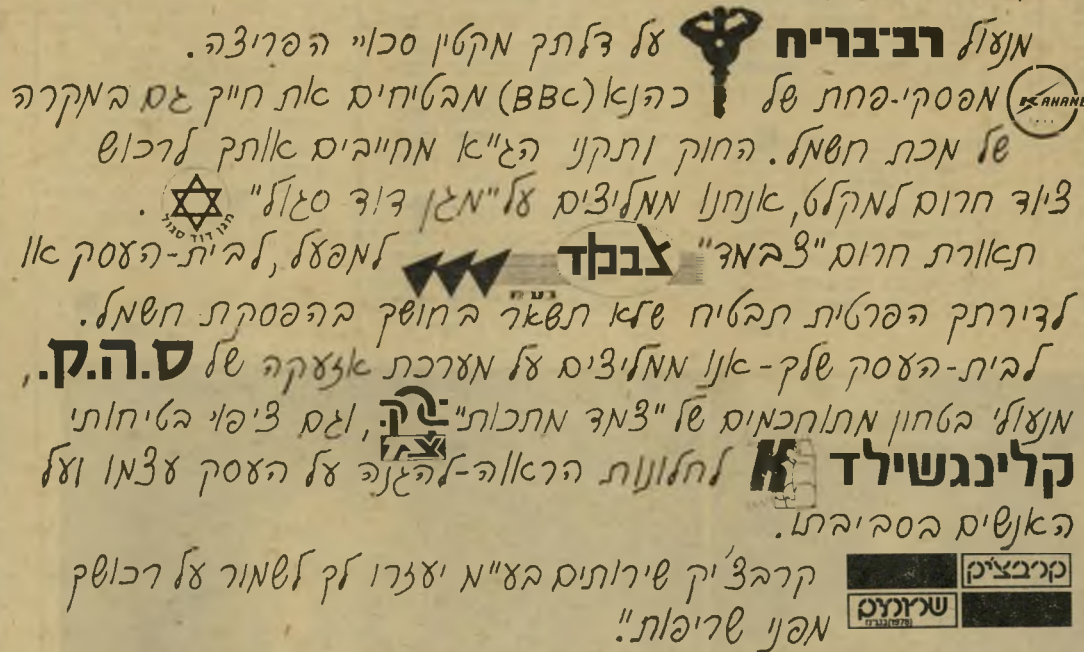 מנעול רב־בריח על דלתך מקטין סכויי הפריצה.
מפסקי-פחת של כהנא (BBC) מבטיחים את חייך גם במקרה
KAHANE
של מכת חשמל. החוק ותקני הג"א מחייבים אותך לרכוש
ציוד חרום למקלט, אנחנו ממליצים על "מגן דוד סגול".
מגן דוד סגול
תאורת חרום "צבמד" צבמד למפעל, לבית-העסק או
בע"מ
לדירתך הפרטית תבטיח שלא תשאר בחושך בהפסקת חשמל.
לבית-העסק שלך - אנו ממליצים על מערכת אזעקה של ס.ה.ק.,
מנעולי בטחון מתוחכמים של "צמד מתכות", וגם ציפוי בטיחותי
קלינגשילד לחלונות הראווה - להגנה על העסק עצמו ועל
האנשים בסביבתו.
קרבצ'יק שירותים בע"מ יעזרו לך לשמור על רכושך
קרבצ'יק
מפני שריפות."
שרותים
(1978) בע"מ